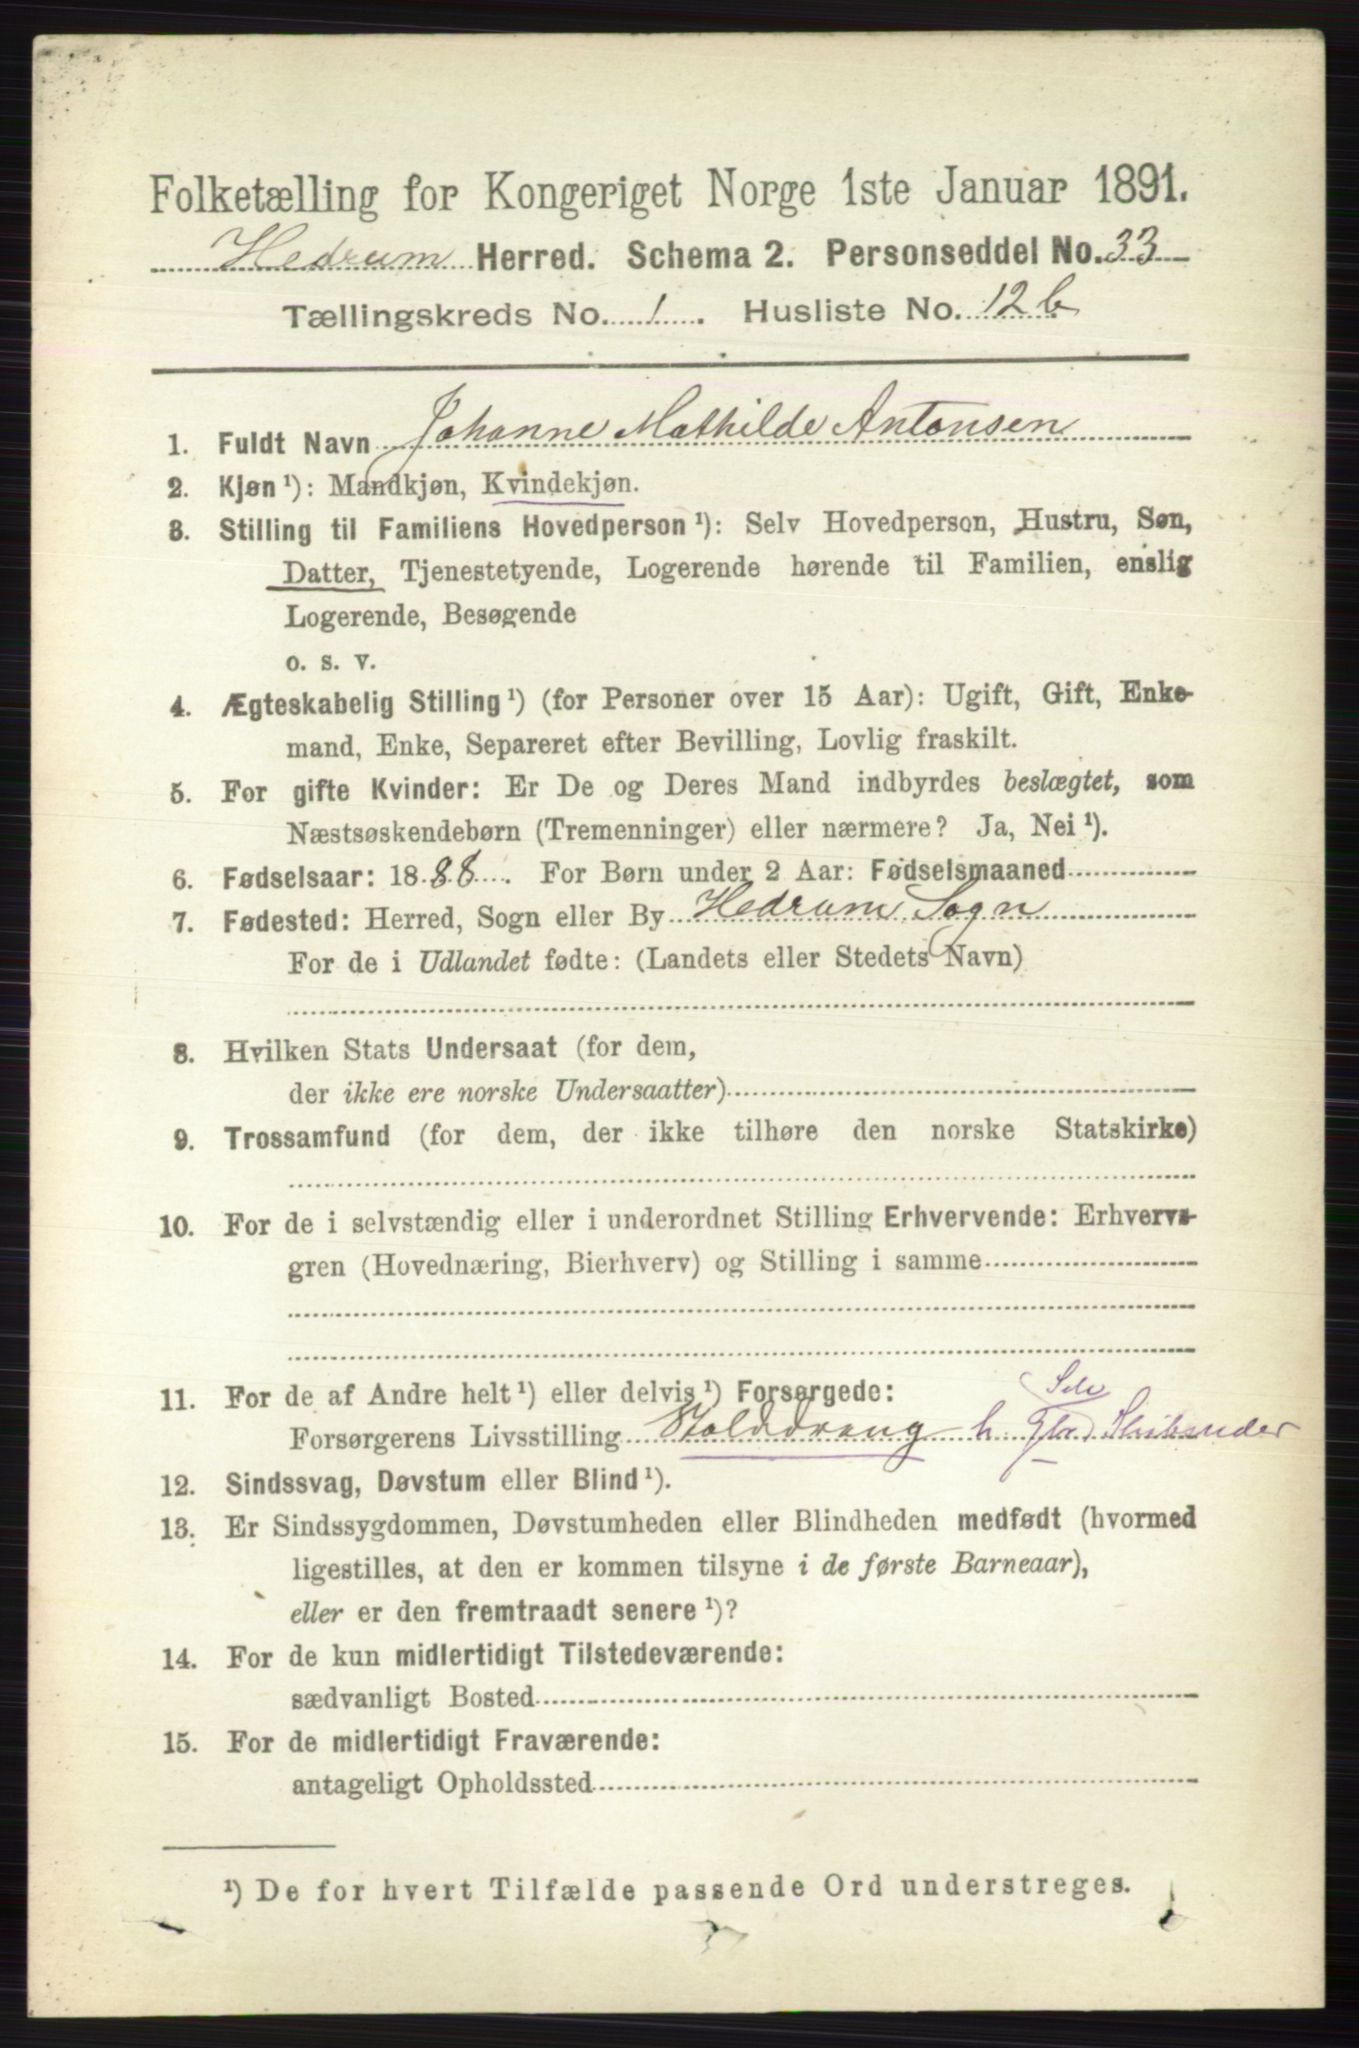 Folketælling for Kongeriget Norge 1ste Januar 1891.
Hedrum Herred. Schema 2. Personseddel No. 33
Tællingskreds No. 1. Husliste No. 12 b
1. Fuldt Navn Johanne Mathilde Antonsen
2. Kjøn ¹): Mandkjøn, Kvindekjøn.
3. Stilling til Familiens Hovedperson ¹): Selv Hovedperson, Hustru, Søn,
Datter, Tjenestetyende, Logerende hørende til Familien, enslig
Logerende, Besøgende
o. s. v.
4. Ægteskabelig Stilling ¹) (for Personer over 15 Aar): Ugift, Gift, Enke-
mand, Enke, Separeret efter Bevilling, Lovlig fraskilt.
5. For gifte Kvinder: Er De og Deres Mand indbyrdes beslægtet, som
Næstsøskendebørn (Tremenninger) eller nærmere? Ja, Nei ¹).
6. Fødselsaar: 1888. For Børn under 2 Aar: Fødselsmaaned
7. Fødested: Herred, Sogn eller By Hedrum Sogn
For de i Udlandet fødte: (Landets eller Stedets Navn)
8. Hvilken Stats Undersaat (for dem,
der ikke ere norske Undersaatter)
9. Trossamfund (for dem, der ikke tilhøre den norske Statskirke)
10. For de i selvstændig eller i underordnet Stilling Erhvervende: Erhvervs-
gren (Hovednæring, Bierhverv) og Stilling i samme
11. For de af Andre helt ¹) eller delvis ¹) Forsørgede:
Forsørgerens Livsstilling Stalddreng h.
12. Sindssvag, Døvstum eller Blind ¹).
13. Er Sindssygdommen, Døvstumheden eller Blindheden medfødt (hvormed
ligestilles, at den er kommen tilsyne i de første Barneaar),
eller er den fremtraadt senere ¹)?
14. For de kun midlertidigt Tilstedeværende:
sædvanligt Bosted
15. For de midlertidigt Fraværende:
antageligt Opholdssted
¹) De for hvert Tilfælde passende Ord understreges.